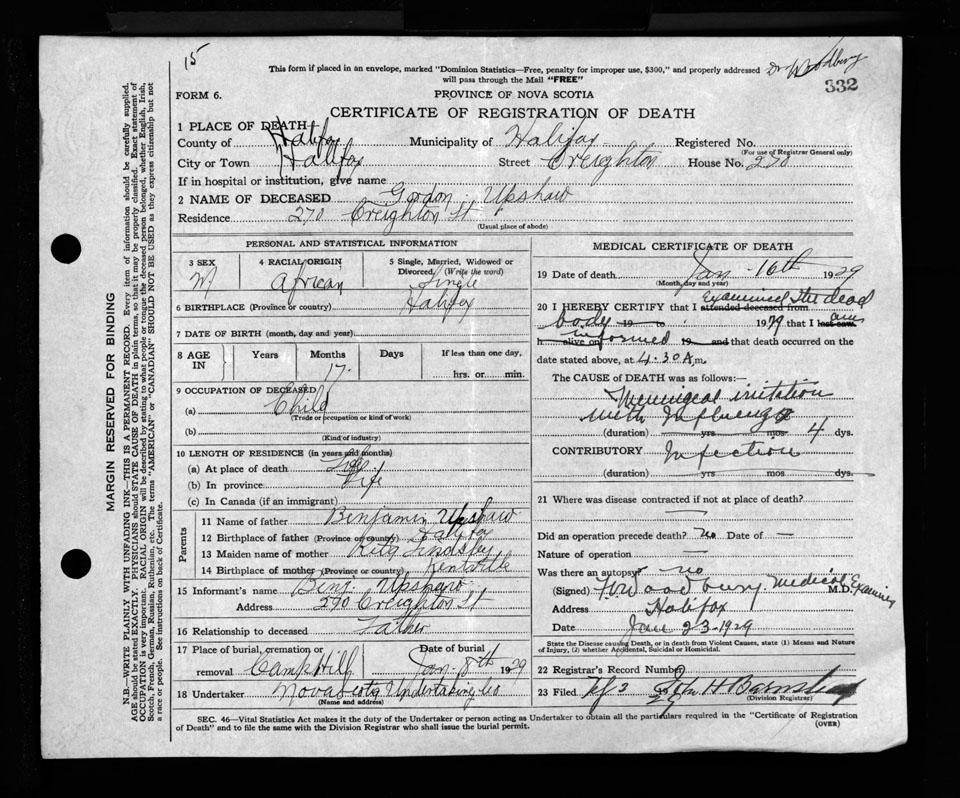 15
This form if placed in an envelope, marked "Dominion Statistics—Free, penalty for improper use, $300," and properly addressed
will pass through the Mail "FREE"
Dr Woodbury
332
FORM 6.
PROVINCE OF NOVA SCOTIA
CERTIFICATE OF REGISTRATION OF DEATH
1 PLACE OF DEATH
County of Halifax Municipality of Halifax Registered No.
(For use of Registrar General only)
City or Town Halifax Street Creighton House No. 270
If in hospital or institution, give name
2 NAME OF DECEASED Gordon Upshaw
Residence 270 Creighton St
(Usual place of abode)
PERSONAL AND STATISTICAL INFORMATION
3 SEX 4 RACIAL ORIGIN 5 Single, Married, Widowed or
Divorced. (Write the word)
M African Single
6 BIRTHPLACE (Province or country) Halifax
7 DATE OF BIRTH (month, day and year)
8 AGE IN Years Months Days If less than one day,
17 hrs. or min.
9 OCCUPATION OF DECEASED
(a) Child
(Trade or occupation or kind of work)
(b)
(Kind of industry)
10 LENGTH OF RESIDENCE (in years and months)
(a) At place of death Life
(b) In province Life
(c) In Canada (if an immigrant)
Parents
11 Name of father Benjamin Upshaw
12 Birthplace of father (Province or country) Halifax
13 Maiden name of mother Rita Lindsley
14 Birthplace of mother (Province or country) Kentville
15 Informant's name Benj. Upshaw
Address 270 Creighton St
16 Relationship to deceased Father
17 Place of burial, cremation or Date of burial
removal Camp Hill Jan 18th 1929
18 Undertaker Nova Scotia Undertaking Co
(Name and address)
MEDICAL CERTIFICATE OF DEATH
19 Date of death Jan - 16th 1929
(Month, day and year)
20 I HEREBY CERTIFY that I attended deceased from examined the dead
body 19 to 1929 that I last saw am
h alive on informed 19 and that death occurred on the
date stated above, at 4.30 A m.
The CAUSE OF DEATH was as follows:—
Meningeal irritation
with Influenza
(duration) yrs mos 4 dys.
CONTRIBUTORY Infection
(duration) yrs. mos. dys.
21 Where was disease contracted if not at place of death?
Did an operation precede death? no Date of —
Nature of operation —
Was there an autopsy? no
(Signed) Woodbury Medical Examiner M.D.
Address Halifax
Date Jan 23-1929
State the Disease causing Death, or in death from Violent Causes, state (1) Means and Nature
of Injury, (2) whether Accidental, Suicidal or Homicidal.
22 Registrar's Record Number
23 Filed 3 1929 John H Barnstead
(Division Registrar)
SEC. 46—Vital Statistics Act makes it the duty of the Undertaker or person acting as Undertaker to obtain all the particulars required in the "Certificate of Registration
of Death" and to file the same with the Division Registrar who shall issue the burial permit.
(OVER)
MARGIN RESERVED FOR BINDING
N.B.—WRITE PLAINLY WITH UNFADING INK—THIS IS A PERMANENT RECORD. Every item of information should be carefully supplied.
AGE should be stated EXACTLY. PHYSICIANS should STATE CAUSE OF DEATH in plain terms, so that it may be properly classified. Exact statement of
OCCUPATION is very important. RACIAL ORIGIN will be described by stating to what people or tongue the deceased person belonged, whether English, Irish,
Scotch, French, German, Russian, Ruthenian, etc. The terms "AMERICAN" or "CANADIAN" SHOULD NOT BE USED as they express citizenship but not
a race or people. See instructions on back of Certificate.